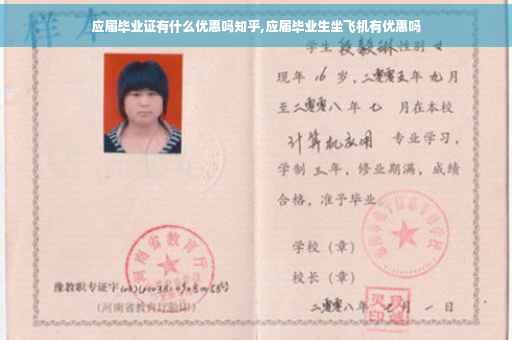 应届毕业证有什么优惠吗知乎,应届毕业生坐飞机有优惠吗
样本
学生 段毅琳 性别 女
现年 16 岁，二零零五年 九月
至二零零八年 七 月在本校
计算机应用 专业学习，
学制 三 年，修业期满，成绩
合格，准予毕业
学校（章）
校长（章）
河南省教育厅
豫教职专证字
（河南省教育厅验印）
二零零八年 七 月 一 日